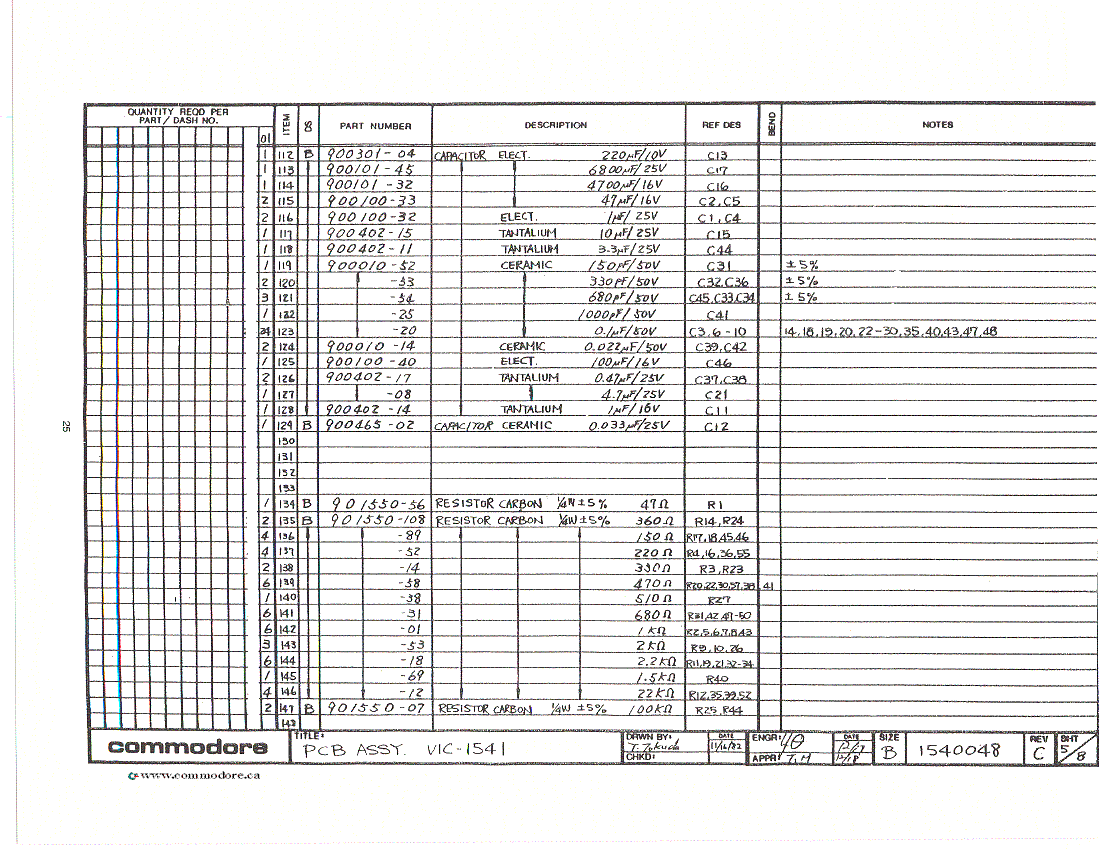 QUANTITY REQD PER PART/ DASH NO. 01 ITEM PART NUMBER DESCRIPTION REF DES BEND NOTES
1 112 B 900301-04 CAPACITOR ELECT. 220µF/10V C13
1 113 900101-45 6800µF/25V C17
1 114 900101-32 4700µF/16V C16
2 115 900100-33 47µF/16V C2,C5
2 116 900100-32 ELECT. 1µF/25V C1,C4
1 117 900402-15 TANTALIUM 10µF/25V C15
1 118 900402-11 TANTALIUM 3.3µF/25V C44
1 119 900010-52 CERAMIC 150pF/50V C31 ±5%
2 120 -33 330PF/50V C32,C36 ±5%
3 121 -34 680pF/50V C45,C33,C34 ±5%
1 122 -25 1000pF/50V C41
123 -20 0.1µF/50V C3,6-10 14,18,19,20,22-30,35,40,43,47,48
2 124 900010-14 CERAMIC 0.022µF/50V C39,C42
1 125 900100-40 ELECT. 100µF/16V C46
2 126 900402-17 TANTALIUM 0.47µF/25V C37,C38
1 127 -08 4.7µF/25V C21
1 128 900402-14 TANTALIUM 1µF/16V C11
1 129 B 900465-02 CAPACITOR CERAMIC 0.033µF/25V C12
130
131
132
133
1 134 B 901550-56 RESISTOR CARBON ¼W±5% 47Ω R1
2 135 B 901550-108 RESISTOR CARBON ¼W±5% 360Ω R14,R24
4 136 -89 150Ω R17,18,45,46
4 137 -52 220Ω R4,16,36,55
2 138 -14 330Ω R3,R23
6 139 -58 470Ω R20,22,30,57,38 41
1 140 -38 510Ω R27
6 141 -31 680Ω R31,42,47-50
6 142 -01 1KΩ R2,5,6,7,8,43
3 143 -53 2KΩ R9,10,26
6 144 -18 2.2KΩ R11,19,21,32-34
1 145 -69 1.5KΩ R40
4 146 -12 22KΩ R12,35,39,52
2 147 B 901550-07 RESISTOR CARBON ¼W±5% 100KΩ R25,R44
148
25
commodore TITLE: PCB ASSY. VIC-1541 DRWN BY: T. Tokuda DATE 11/16/82 CHKD: ENGR: DATE APPR: T.M SIZE B 1540048 REV C SHT 5/8
www.commodore.ca